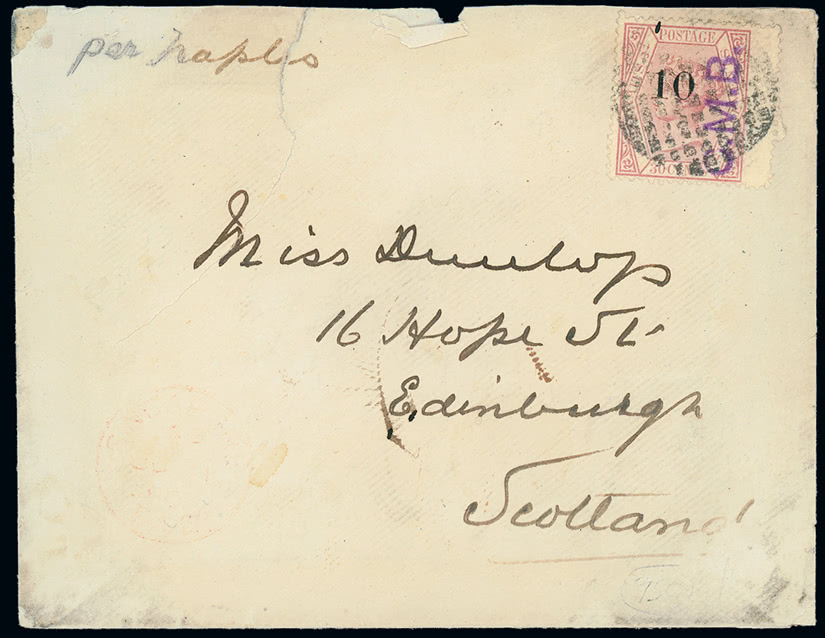 per Naples
POSTAGE
10
C.M.B.
30 C
Miss Dunlop
16 Hope St.
Edinburgh
Scotland